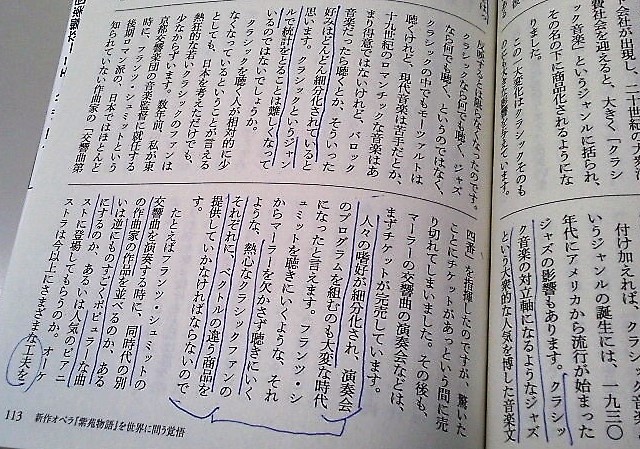 会社が出現し、二十世紀の大
費社会を迎えると、大きく「クラシ
ック音楽」というジャンルに括られ、
その名の下に商品化されるようにな
りました。
この一大変化はクラシックそのも
付け加えれば、クラ
いうジャンルの誕生には、一九三〇
年代にアメリカから流行が始まった
ジャズの影響もあります。クラシッ
ク音楽の対立軸になるようなジャズ
という大衆的な人気を博した音楽文
反映するとは限らなくなったのです。
クラシックなら何でも聴く、ジャズ
なら何でも聴く、というのではなく、
クラシックの中でもモーツァルトは
聴くけれど、現代音楽は苦手だとか、
十九世紀のロマンチックな音楽はあ
まり得意ではないけれど、バロック
音楽だったら聴くとか、そういった
好みはどんどん細分化されていると
思います。クラシックというジャン
ルで統計をとることは難しくなって
いるのではないでしょうか。
クラシックを聴く人が相対的に少
なくなっているということが言える
としても、日本を考えただけでも、
熱烈な若いクラシックのファンは
少なからずいます。数年前、私が東
京都交響楽団の音楽監督に就任する
時に、フランツ・シュミットという
後期ロマン派の、日本ではほとんど
知られていない作曲家の「交響曲第
四番」を指揮したのですが、驚いた
ことにチケットがあっという間に売
り切れてしまいました。その後も、
マーラーの交響曲の演奏会などは、
まずチケットが完売しています。
人々の嗜好が細分化され、演奏会
のプログラムを組むのも大変な時代
になったと言えます。フランツ・シ
ュミットを聴きにいくような、それ
からマーラーを欠かさず聴きにいく
ような、熱心なクラシックファンの
それぞれに、ベクトルの違う商品を
提供していかなければならないので
たとえばフランツ・シュミットの
交響曲を演奏する時に、同時代の別
の作曲家の作品を並べるのか、ある
いは逆にものすごくポピュラーな曲
にするのか、あるいは人気のピアニ
ストに登場してもらうのか。オーケ
ストラは今以上にさまざまな工夫を
113 新作オペラ『紫苑物語』を世界に問う覚悟